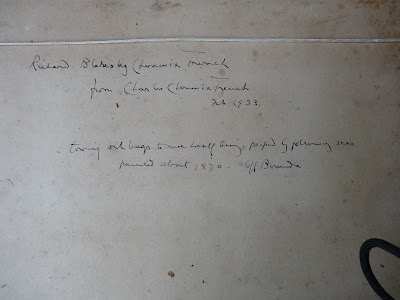 Richard Blakesley Chenevix Trench
from Charles Chenevix Trench
Feb. 1933.
Towing oil bags to save half being pooped by following seas
painted about 1870. Off Bermuda